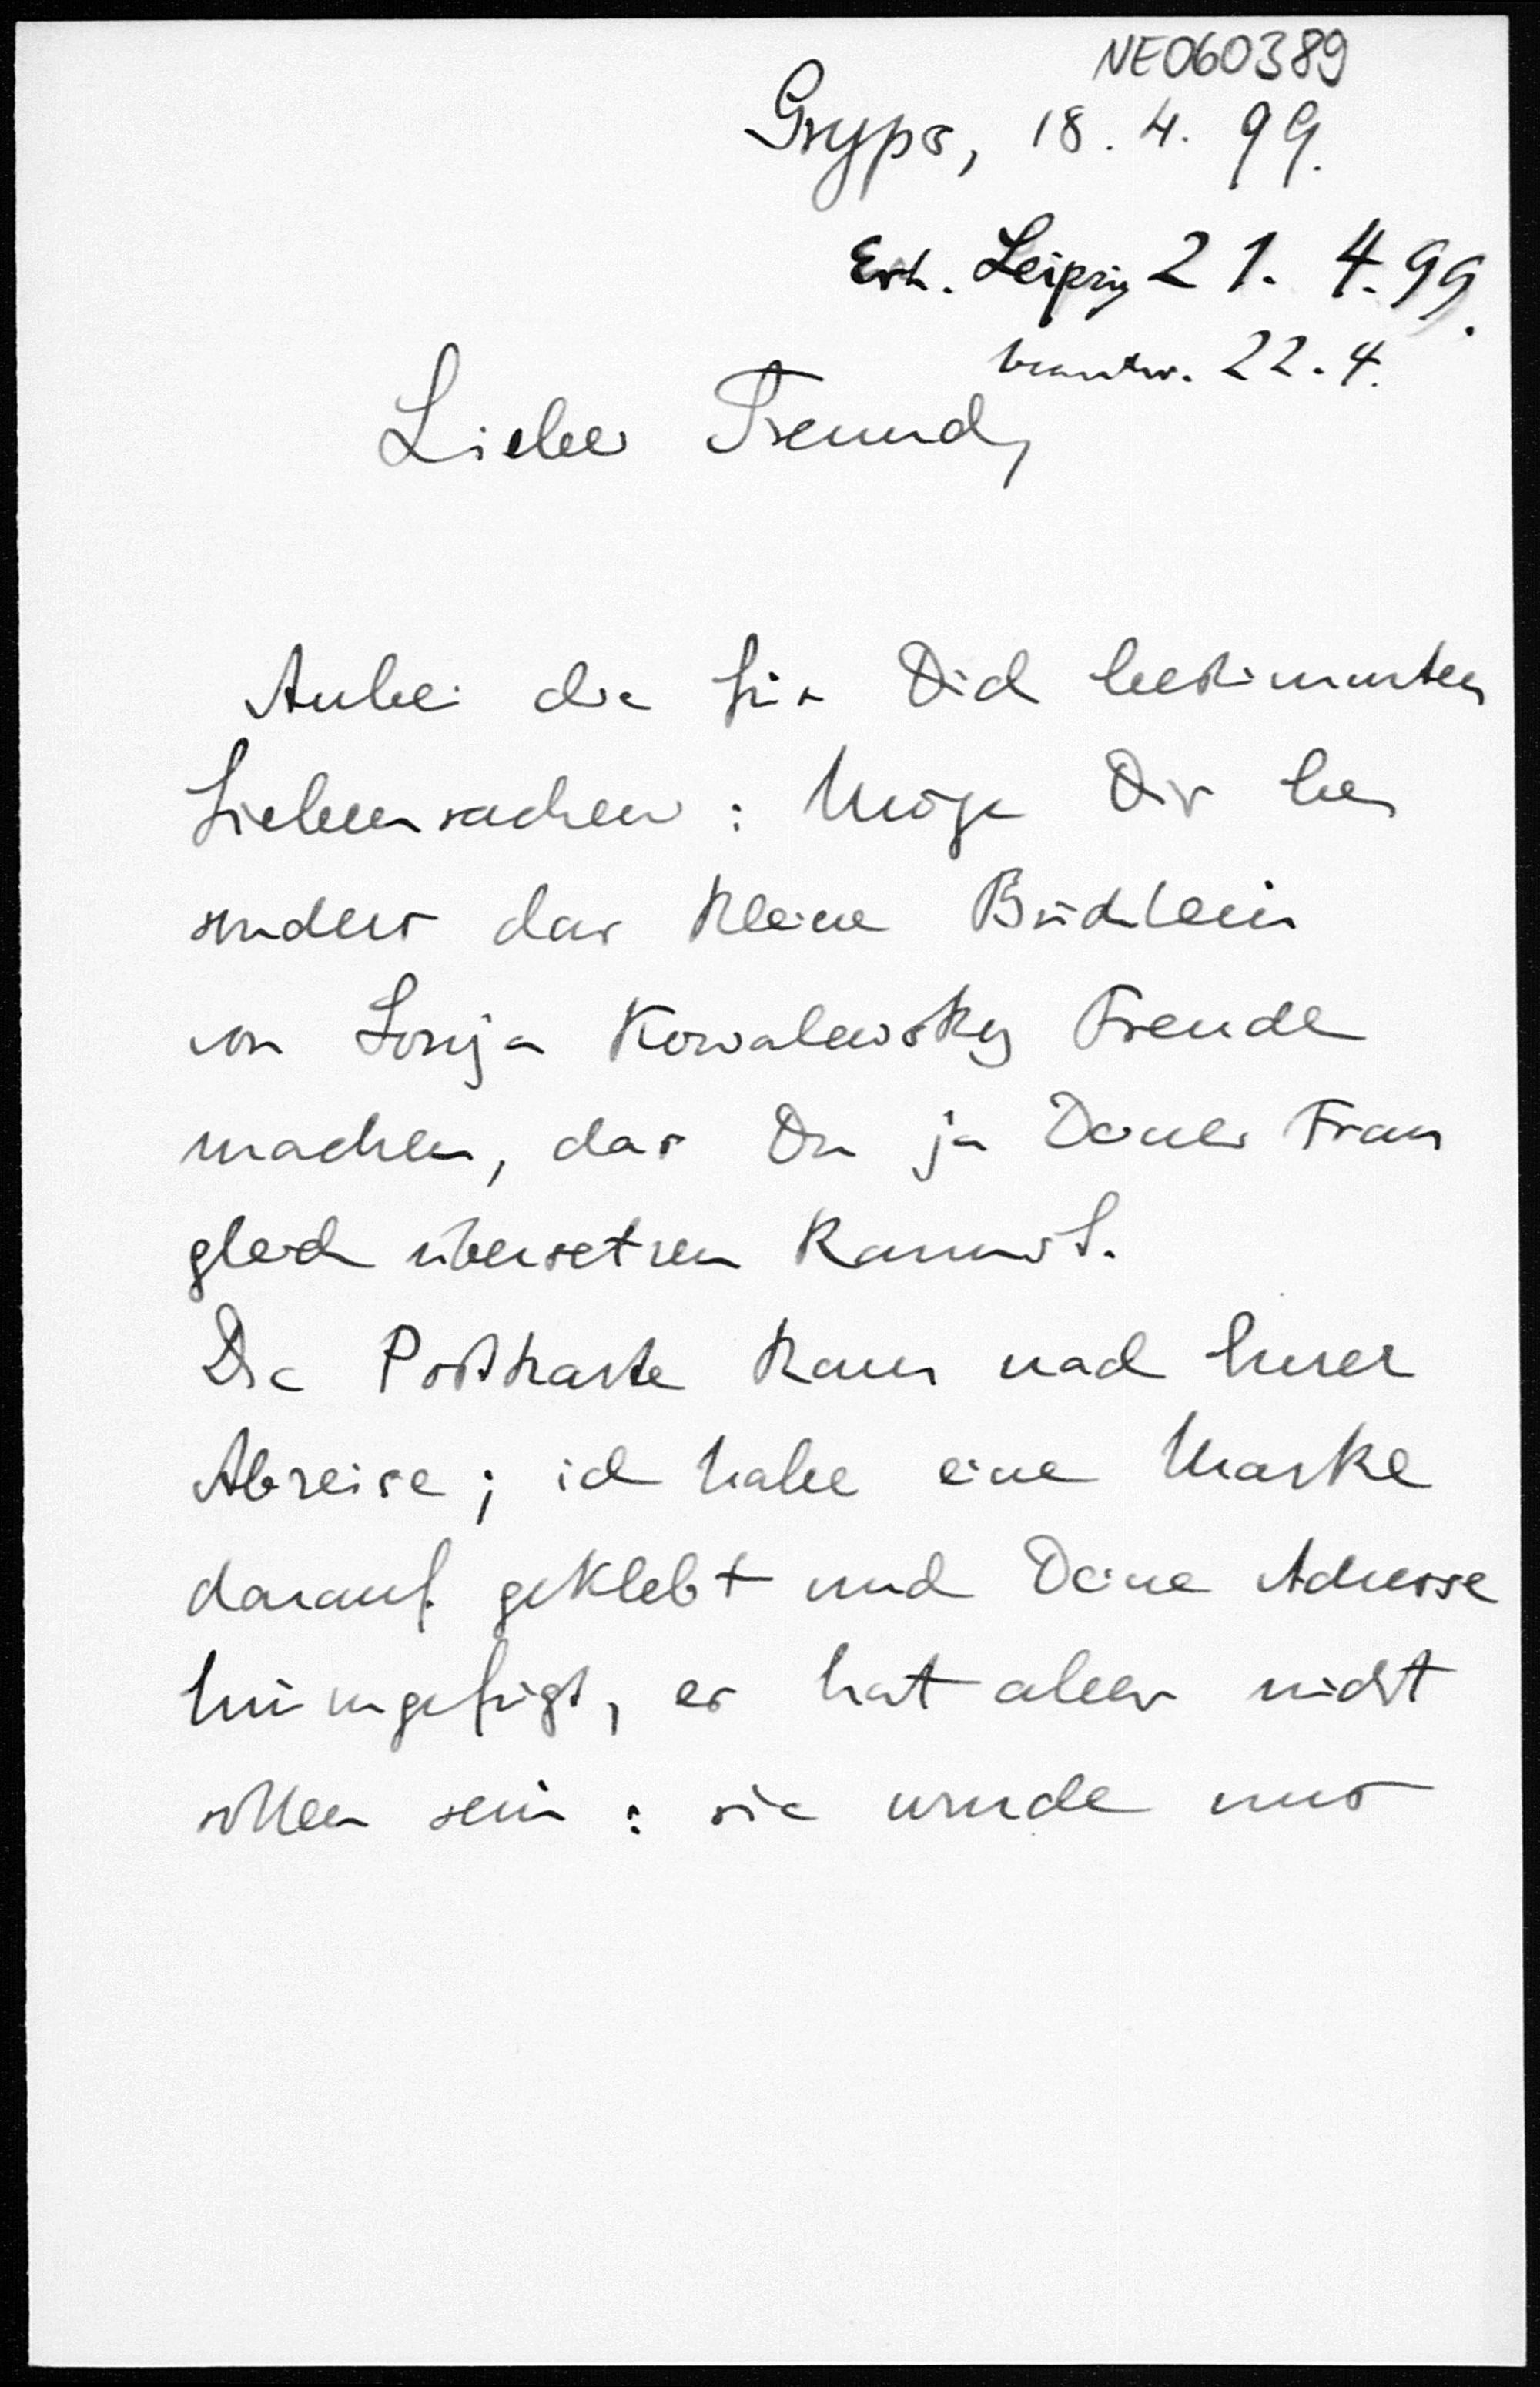 NE060389
Gryps, 18. 4. 99.
Erh. Leipzig 21. 4. 99.
beantw. 22. 4.
Lieber Freund,
Anbei die für Dich bestimmten
Siebensachen: Möge Dir be
sonders das kleine Büchlein
von Sonja Kowalewsky Freude
machen, das Du ja Deiner Frau
gleich übersetzen kannst.
Die Postkarte kam nach Eurer
Abreise; ich habe eine Marke
darauf geklebt und Deine Adresse
hinzugefügt, es hat aber nicht
sollen sein: sie wurde mir